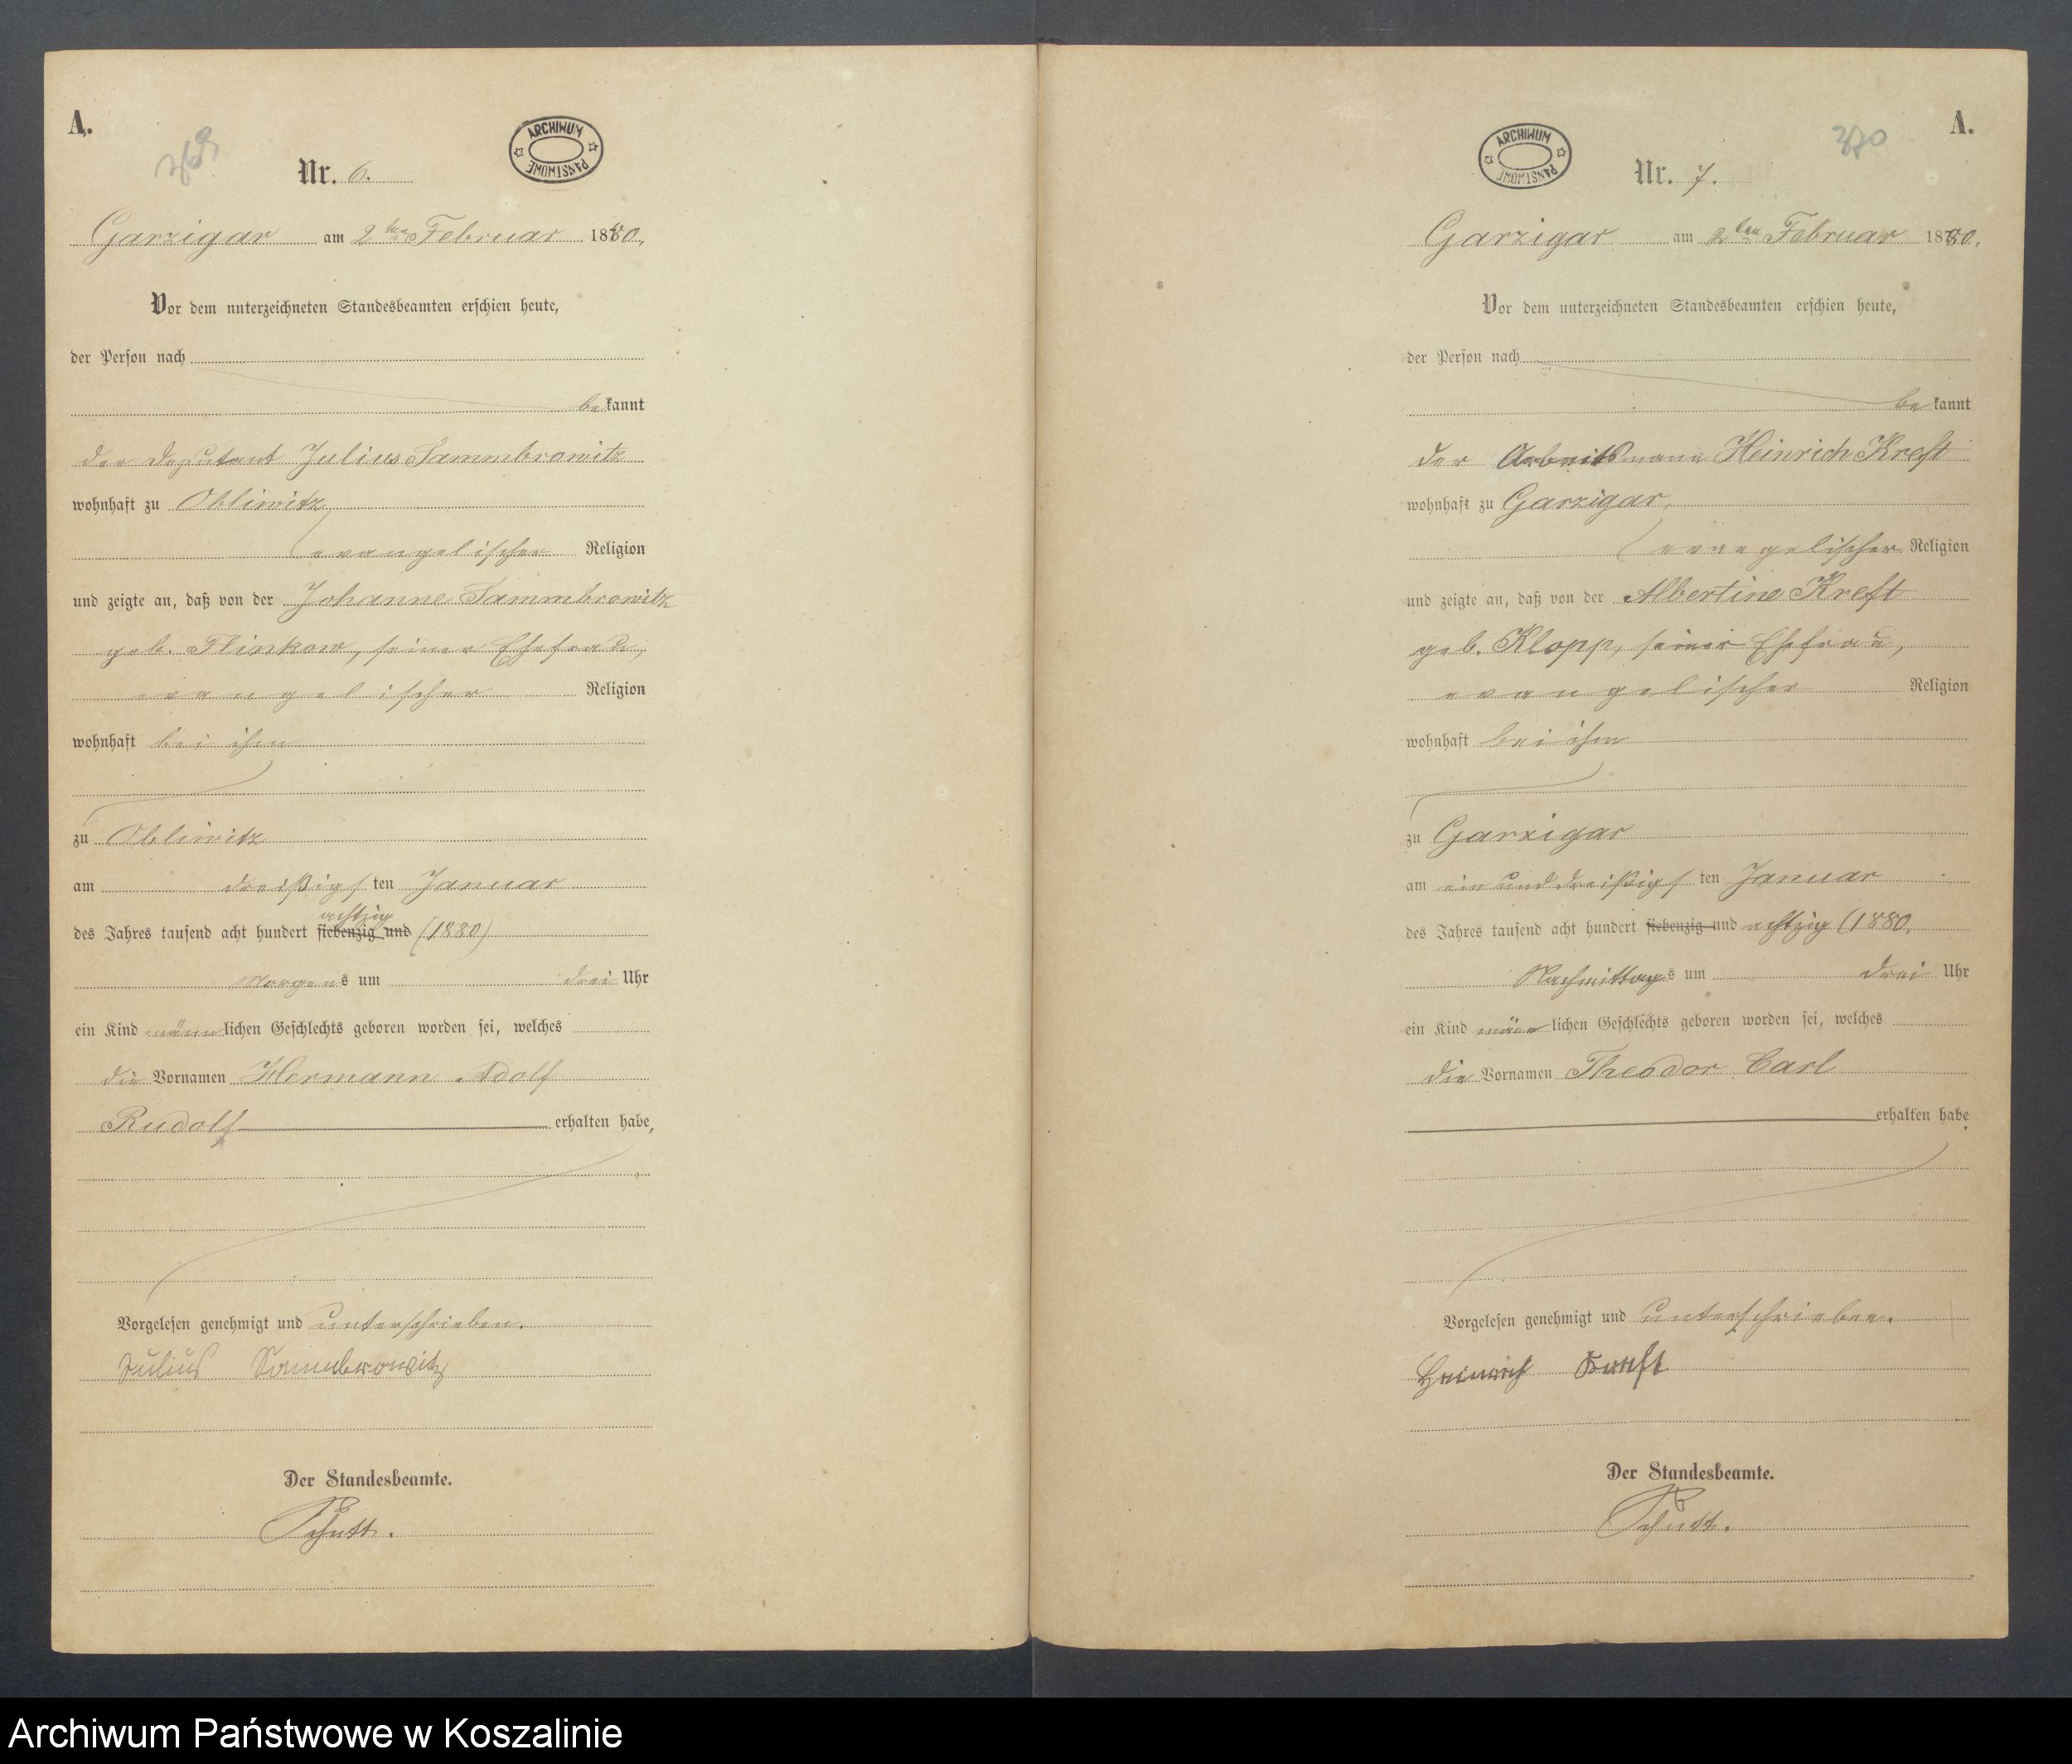 A.
369
Nr. 6.
ARCHIWUM
PAŃSTWOWE
Garzigar am 2ten Februar 1880,
Vor dem unterzeichneten Standesbeamten erschien heute,
der Person nach
bekannt
der Deputant Julius Sammbrowitz
wohnhaft zu Obliwitz
evangelischer Religion
und zeigte an, daß von der Johanne Sammbrowitz
geb. Flinkow, seiner Ehefrau,
evangelischer Religion
wohnhaft bei ihm
zu Obliwitz
am dreißigsten Januar
achtzig
des Jahres tausend acht hundert siebenzig und (1880)
Morgens um drei Uhr
ein Kind männlichen Geschlechts geboren worden sei, welches
die Vornamen Hermann Adolf
Rudolf erhalten habe,
Vorgelesen genehmigt und unterschrieben.
Julius Sammbrowitz
Der Standesbeamte.
Schutt.
A.
370
Nr. 7.
ARCHIWUM
PAŃSTWOWE
Garzigar am 2ten Februar 1880,
Vor dem unterzeichneten Standesbeamten erschien heute,
der Person nach
bekannt
der Arbeitsmann Heinrich Kreft
wohnhaft zu Garzigar,
evangelischer Religion
und zeigte an, daß von der Albertine Kreft
geb. Klopp, seiner Ehefrau,
evangelischer Religion
wohnhaft bei ihm
zu Garzigar
am ein und dreißigsten Januar
des Jahres tausend acht hundert siebenzig und achtzig (1880.
Nachmittags um drei Uhr
ein Kind männlichen Geschlechts geboren worden sei, welches
die Vornamen Theodor Carl
erhalten habe.
Vorgelesen genehmigt und unterschrieben.
Heinrich Kreft
Der Standesbeamte.
Schutt.
Archiwum Państwowe w Koszalinie